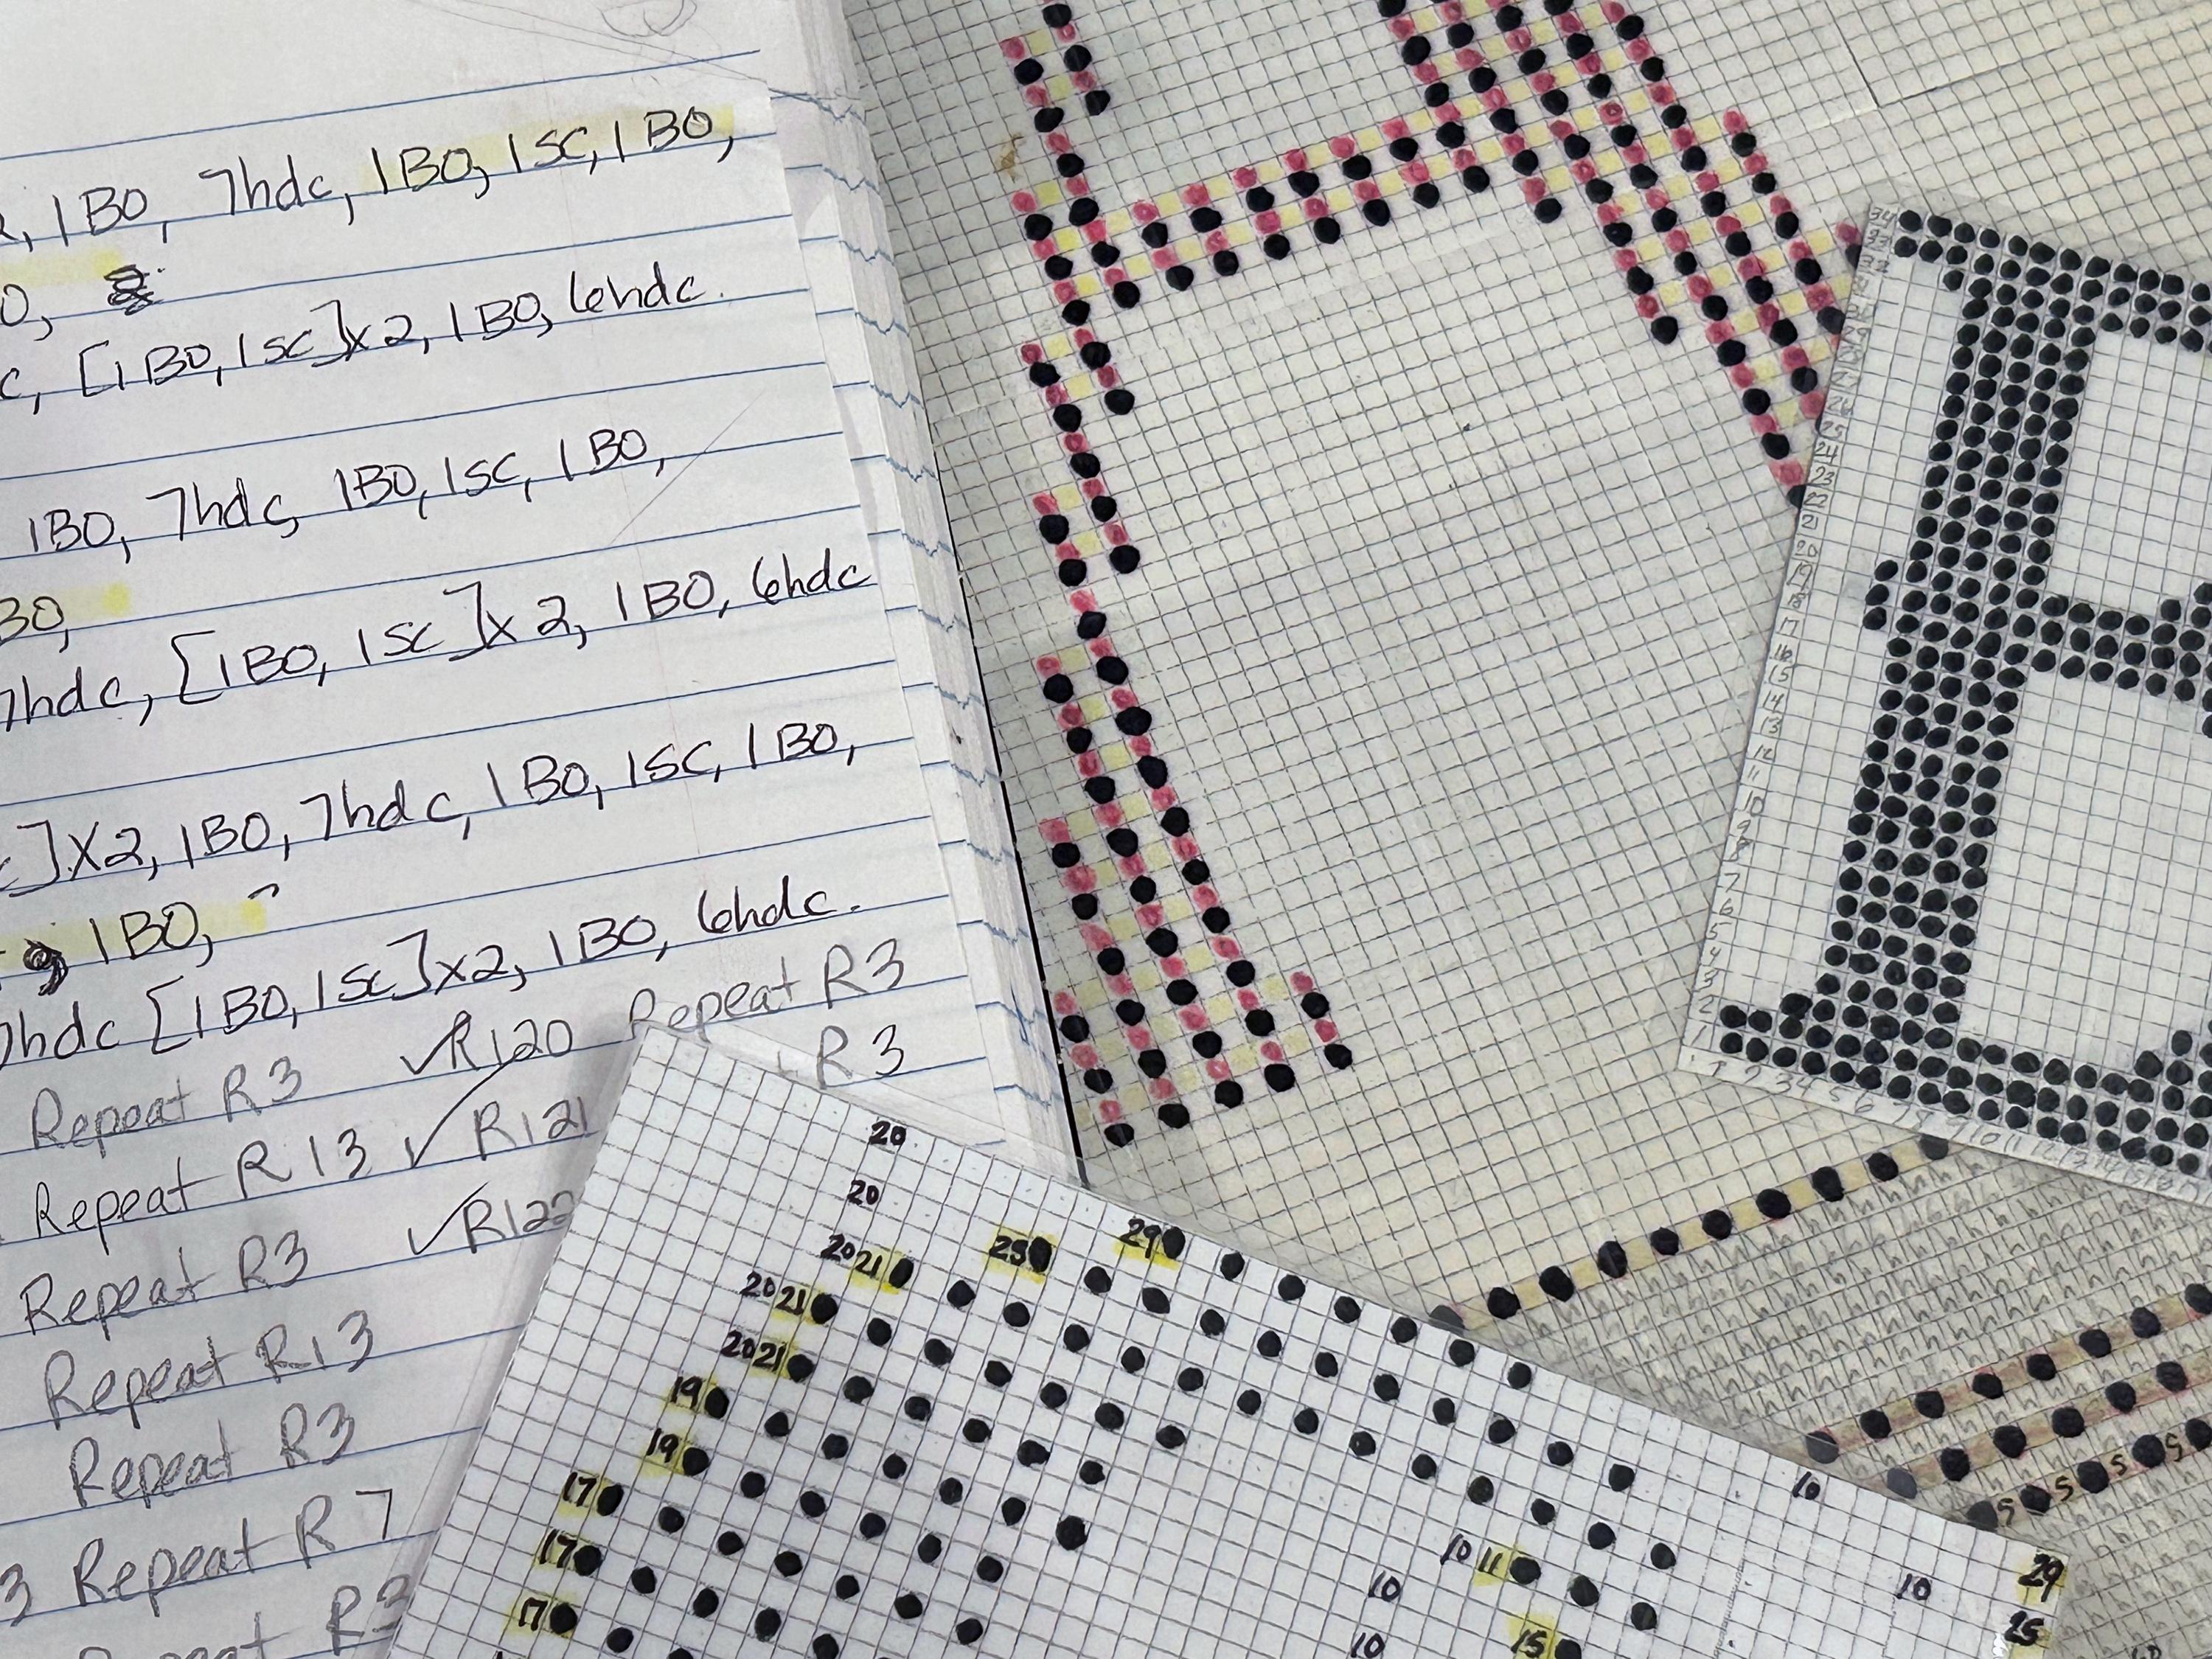 , 1BO, 7hdc, 1BO, 1SC, 1BO,
O,
c, [1BO, 1SC]x2, 1BO, 6hdc.
1BO, 7hdc, 1BO, 1SC, 1BO,
BO,
7hdc, [1BO, 1SC]x2, 1BO, 6hdc
]x2, 1BO, 7hdc, 1BO, 1SC, 1BO,
, 1BO,
7hdc [1BO, 1SC]x2, 1BO, 6hdc.
Repeat R3 ✓R120 Repeat R3
Repeat R13 ✓R121 R3
Repeat R3 ✓R122
Repeat R13
Repeat R3
3 Repeat R7
Repeat R3
20
20
20 21 25 29
20 21
20 21
19
19
17
17
17
10
10 10 11 10 29
10 15 25
34
33
32
29
26
25
24
23
22
21
20
19
18
17
16
15
14
13
12
11
10
9
8
7
6
5
4
3
2
1
1 2 3 4 5 6 7 8 9 10 11 12 13 14 15 16 17
S S S S